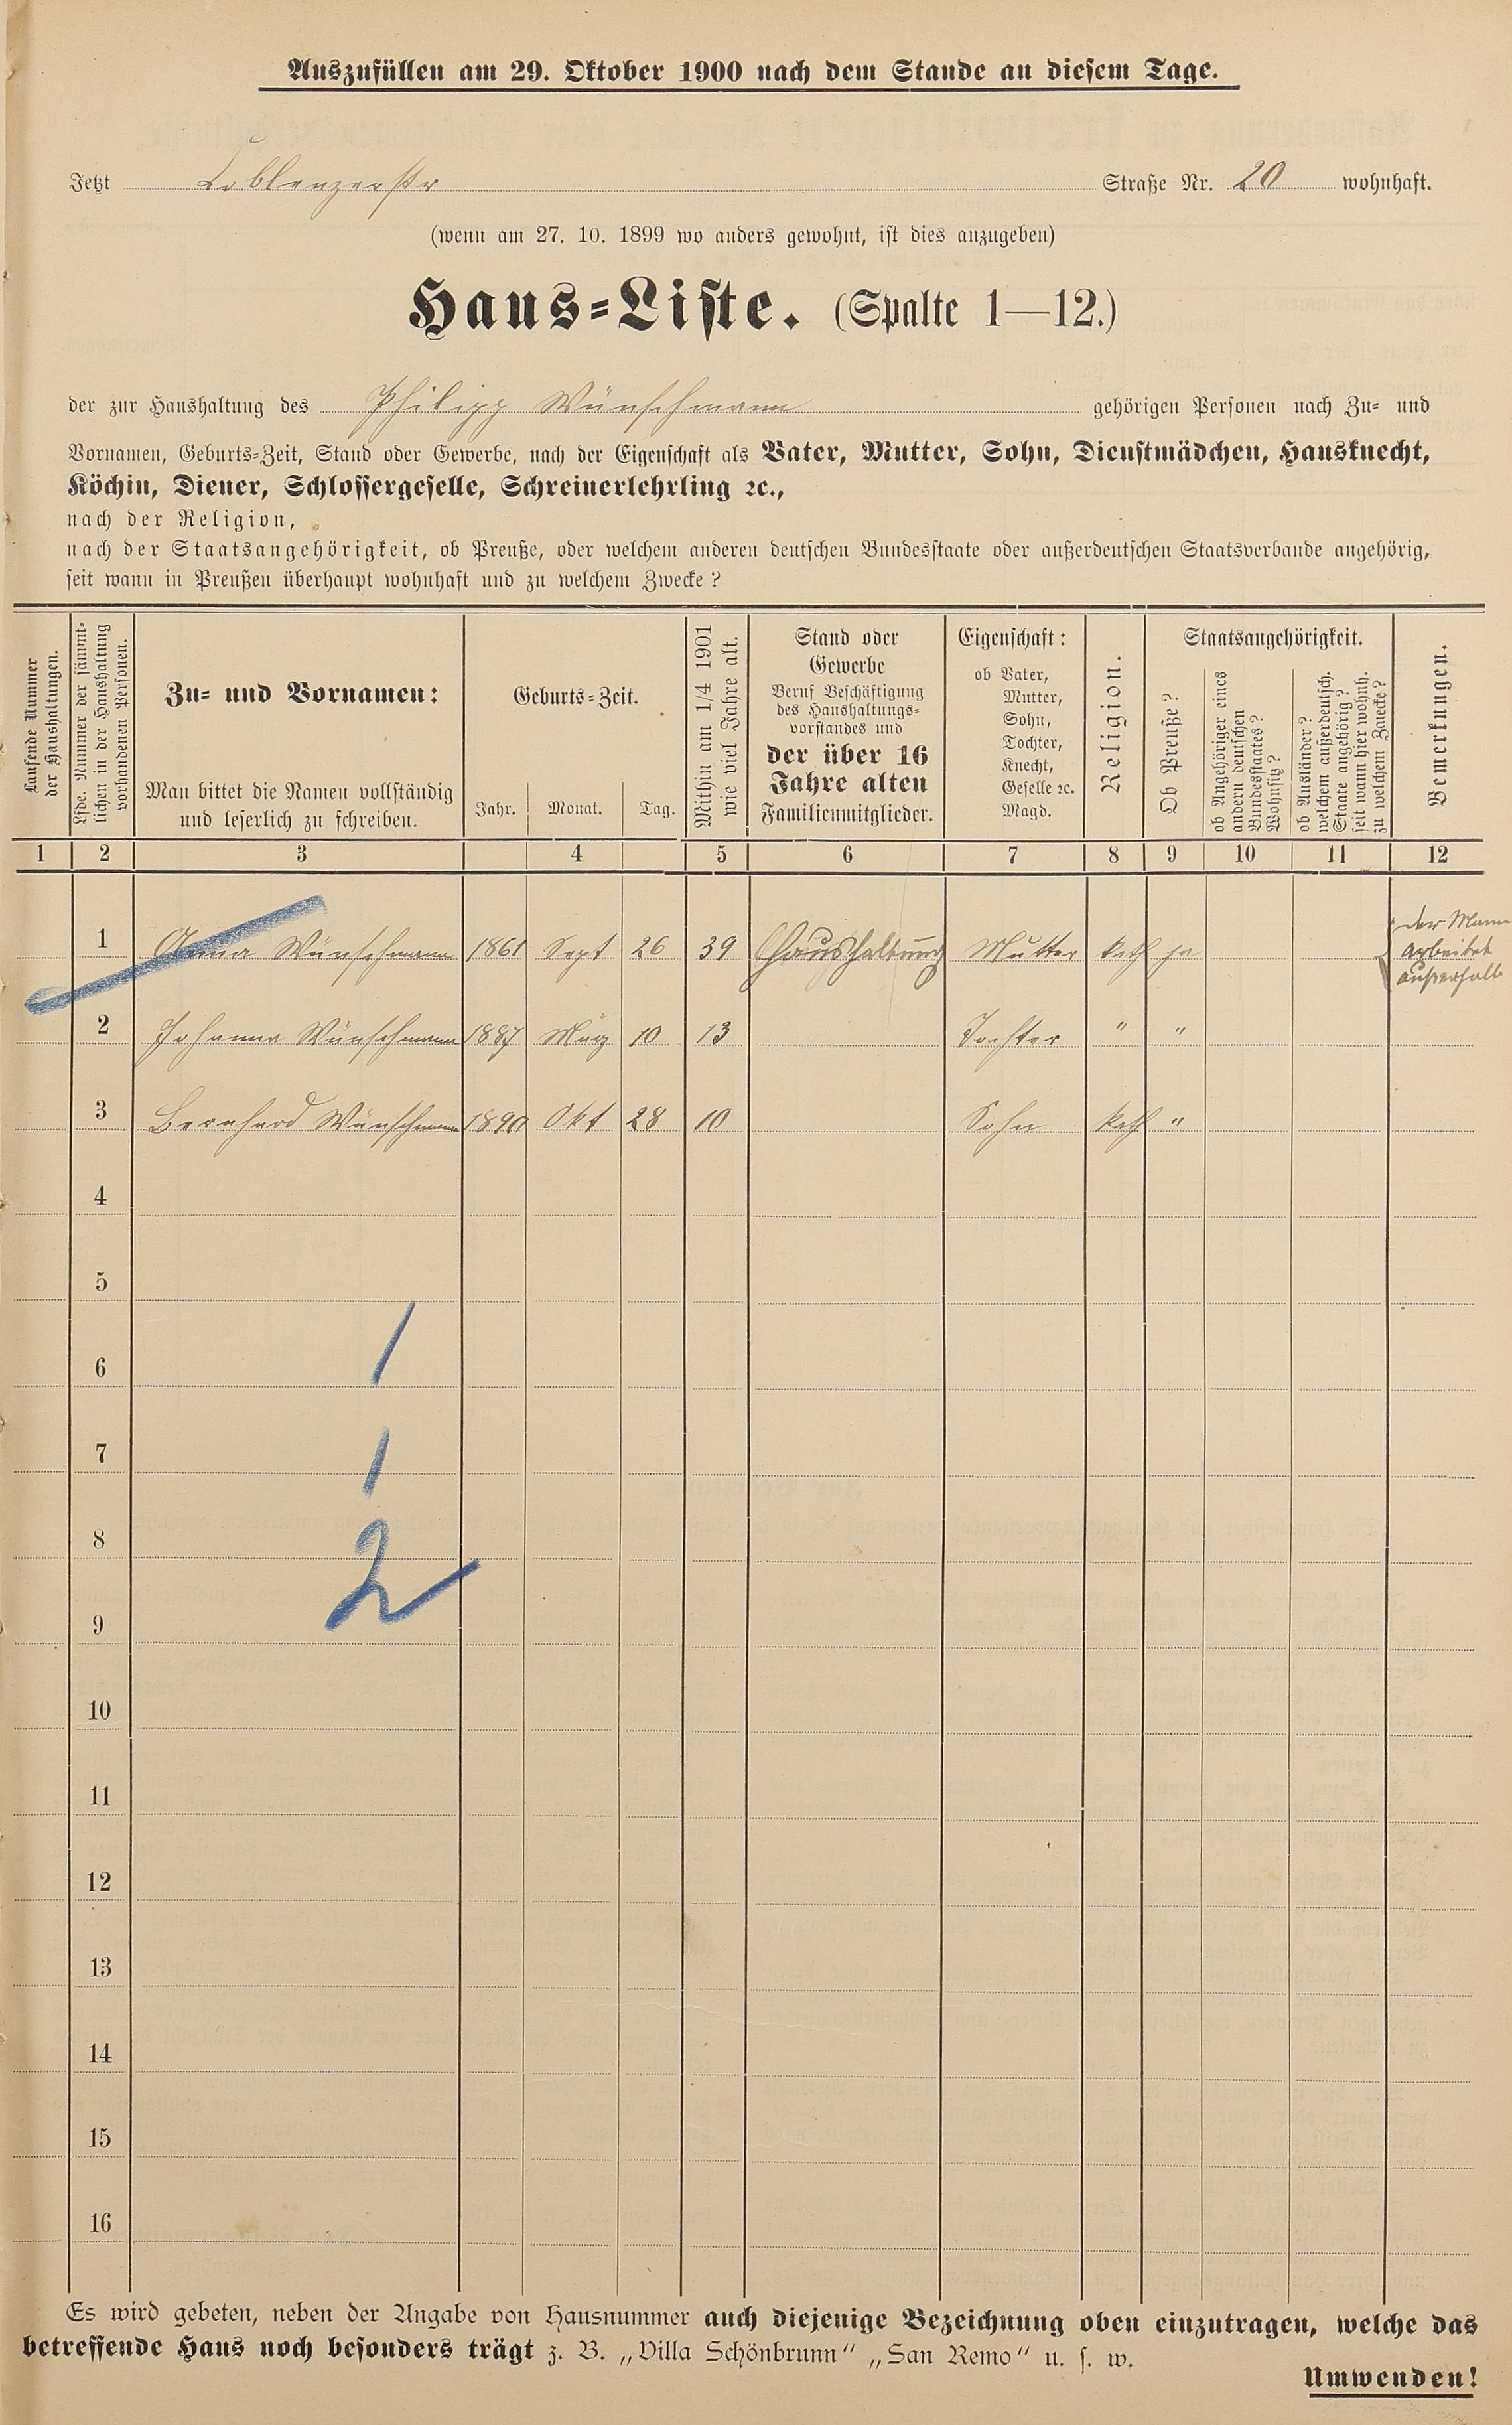 Auszufüllen am 29. Oktober 1900 nach dem Stande an diesem Tage.
Jetzt Coblenzerstr Straße Nr. 20 wohnhaft.
(wenn am 27. 10. 1899 wo anders gewohnt, ist dies anzugeben)
Haus-Liste. (Spalte 1—12.)
der zur Haushaltung des Philipp Wünschmann gehörigen Personen nach Zu- und
Vornamen, Geburts-Zeit, Stand oder Gewerbe, nach der Eigenschaft als Vater, Mutter, Sohn, Dienstmädchen, Hausknecht,
Köchin, Diener, Schlossergeselle, Schreinerlehrling ꝛc.,
nach der Religion,
nach der Staatsangehörigkeit, ob Preuße, oder welchem anderen deutschen Bundesstaate oder außerdeutschen Staatsverbande angehörig,
seit wann in Preußen überhaupt wohnhaft und zu welchem Zwecke?
Laufende Nummer
der Haushaltungen.
Lfde. Nummer der sämmt-
lichen in der Haushaltung
vorhandenen Personen.
Zu- und Vornamen:
Man bittet die Namen vollständig
und leserlich zu schreiben.
Geburts-Zeit.
Jahr. Monat. Tag.
Mithin am 1/4 1901
wie viel Jahre alt.
Stand oder
Gewerbe
Beruf Beschäftigung
des Haushaltungs-
vorstandes und
der über 16
Jahre alten
Familienmitglieder.
Eigenschaft:
ob Vater,
Mutter,
Sohn,
Tochter,
Knecht,
Geselle ꝛc.
Magd.
Religion.
Staatsangehörigkeit.
Ob Preuße?
ob Angehöriger eines
andern deutschen
Bundesstaates?
Wohnsitz?
ob Ausländer?
welchem außerdeutsch.
Staate angehörig?
seit wann hier wohnh.
zu welchem Zwecke?
Bemerkungen.
1 2 3 4 5 6 7 8 9 10 11 12
1 Anna Wünschmann 1861 Sept 26 39 Haushaltung Mutter kath ja der Mann
arbeitet
außerhalb
2 Johanna Wünschmann 1887 März 10 13 Tochter " "
3 Bernhard Wünschmann 1890 Okt 28 10 Sohn kath "
4
5
6 1
7 1
8
2
9
10
11
12
13
14
15
16
Es wird gebeten, neben der Angabe von Hausnummer auch diejenige Bezeichnung oben einzutragen, welche das
betreffende Haus noch besonders trägt z. B. „Villa Schönbrunn“ „San Remo“ u. s. w.
Umwenden!